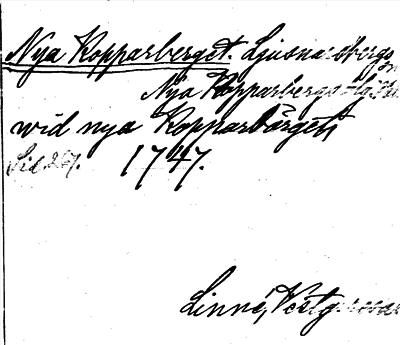 Nya Kopparberget. Ljusnarsbergs
Nya Kopparbergs
wid nya Kopparbärget,
Sid. 267. 1747.
Linné, Vestg.resa